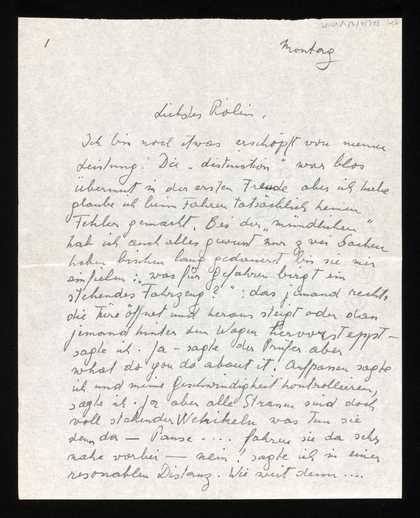 1
Montag
Liebstes Rolin,
Ich bin noch etwas erschöpft von meiner
Leistung. Die "distinction" war blos
übermut in der ersten Freude aber ich habe
glaube ich beim Fahren tatsächlich keinen
Fehler gemacht. Bei der "mündlichen"
hab ich auch alles gewusst nur zwei Sachen
haben bischen lang gedauert bis sie mir
einfielen: "was für Gefahren birgt ein
stehendes Fahrzeug?": dass jemand rechts
die Türe öffnet und heraus steigt oder dass
jemand hinter dem Wagen hervorsteppt –
sagte ich. Ja – sagte der Prüfer aber
what do you do about it. Aufpassen sagte
ich und meine Geschwindigkeit kontrollieren,
sagte ich. Ja aber alle Strassen sind doch
voll stehender Vehikeln was tun sie
denn da – Pause .... fahren sie da sehr
nahe vorbei – nein! sagte ich in einer
resonablen Distanz. Wie weit denn ....